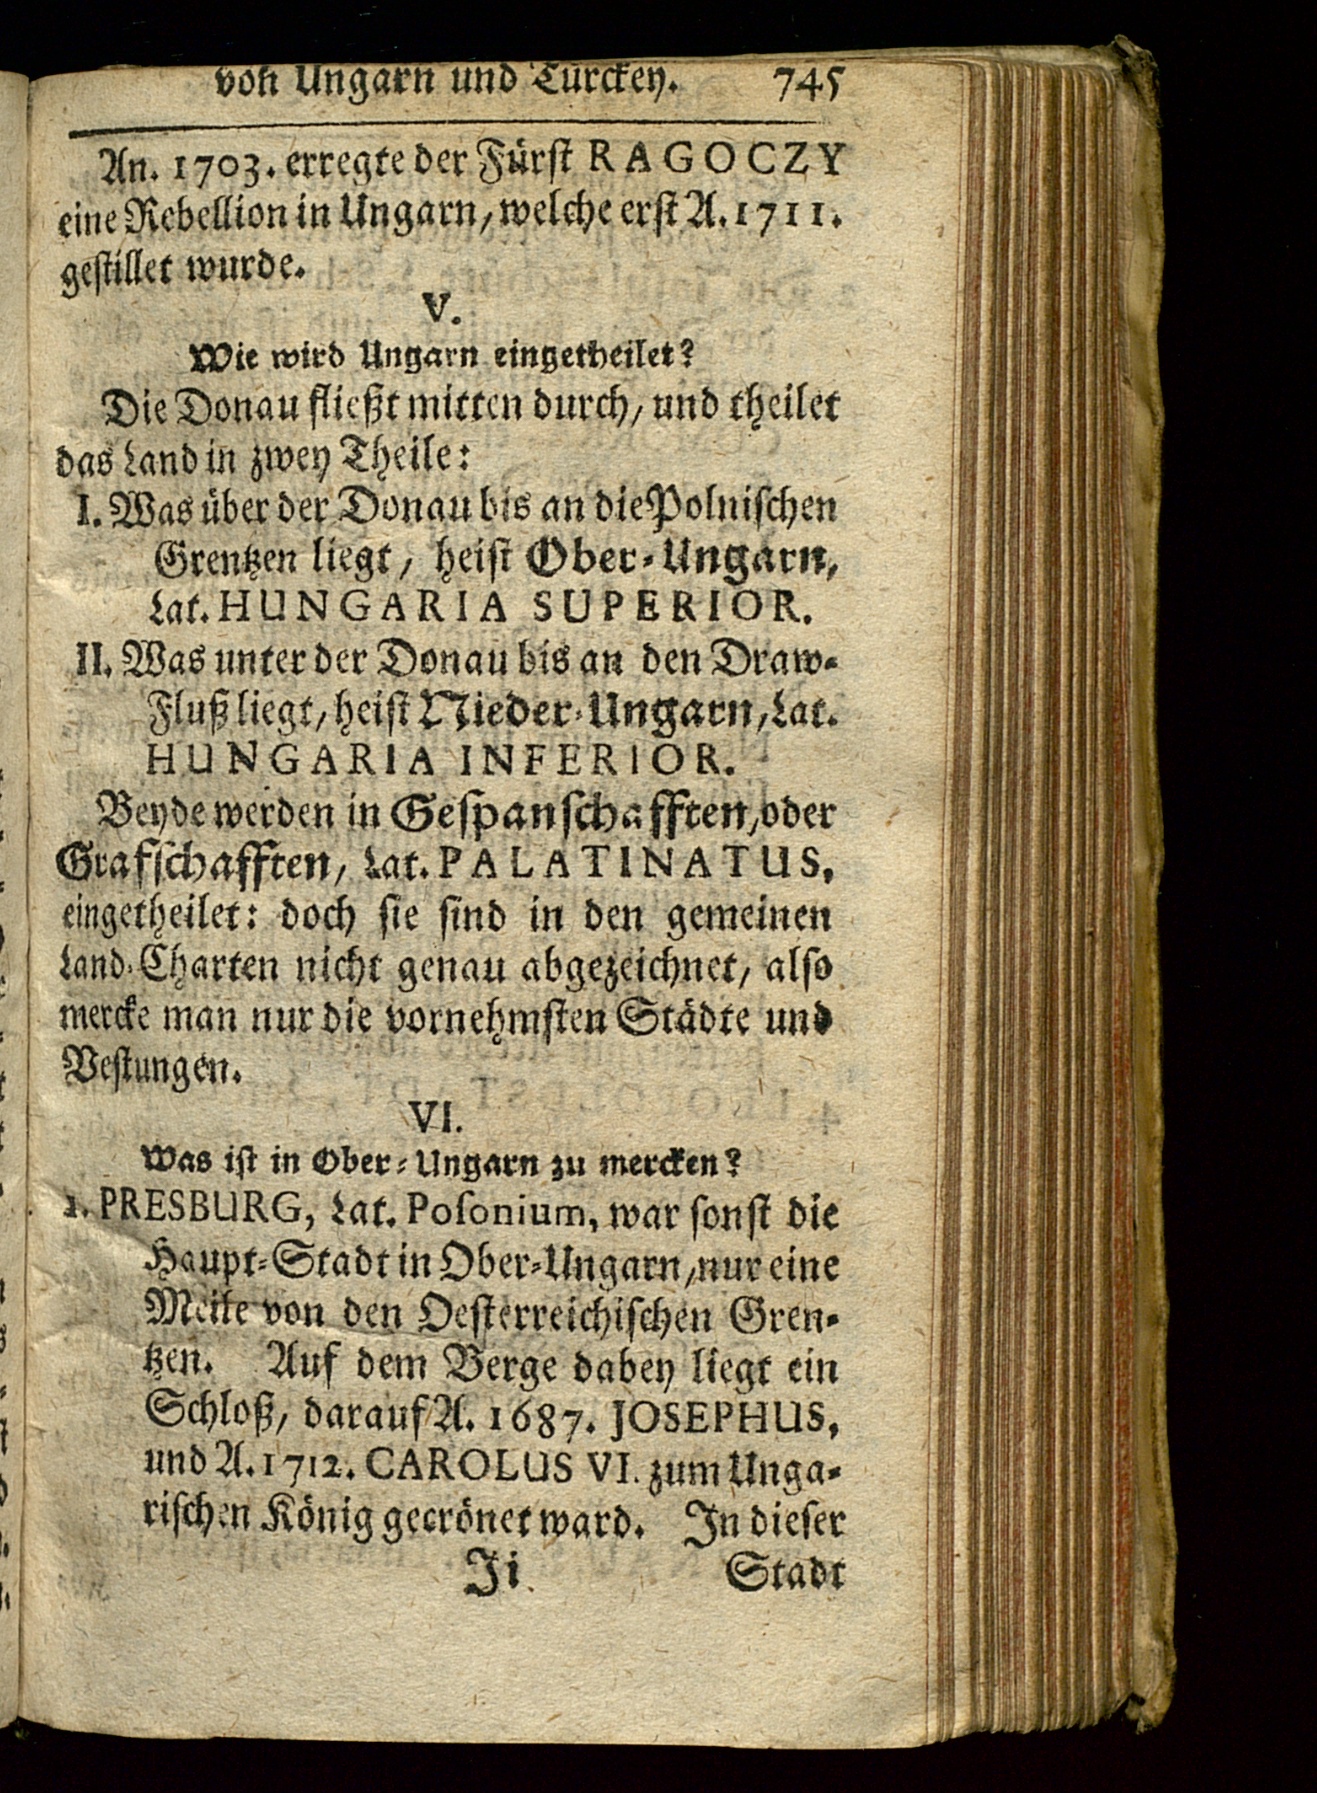 von Ungarn und Türckey. 745
An. 1703. erregte der Fürst RAGOCZY
eine Rebellion in Ungarn, welche erst A. 1711.
gestillet wurde.
V.
Wie wird Ungarn eingetheilet?
Die Donau fließt mitten durch, und theilet
das Land in zwey Theile:
I. Was über der Donau bis an die Polnischen
Grentzen liegt, heist Ober-Ungarn,
Lat. HUNGARIA SUPERIOR.
II. Was unter der Donau bis an den Draw-
Fluß liegt, heist Nieder-Ungarn, Lat.
HUNGARIA INFERIOR.
Beyde werden in Gespanschafften, oder
Grafschafften, Lat. PALATINATUS,
eingetheilet: doch sie sind in den gemeinen
Land-Charten nicht genau abgezeichnet, also
mercke man nur die vornehmsten Städte und
Vestungen.
VI.
Was ist in Ober-Ungarn zu mercken?
1. PRESBURG, Lat. Posonium, war sonst die
Haupt-Stadt in Ober-Ungarn, nur eine
Meile von den Oesterreichischen Gren-
tzen. Auf dem Berge dabey liegt ein
Schloß, darauf A. 1687. JOSEPHUS,
und A. 1712. CAROLUS VI. zum Unga-
rischen König gecrönet ward. In dieser
Ji Stadt